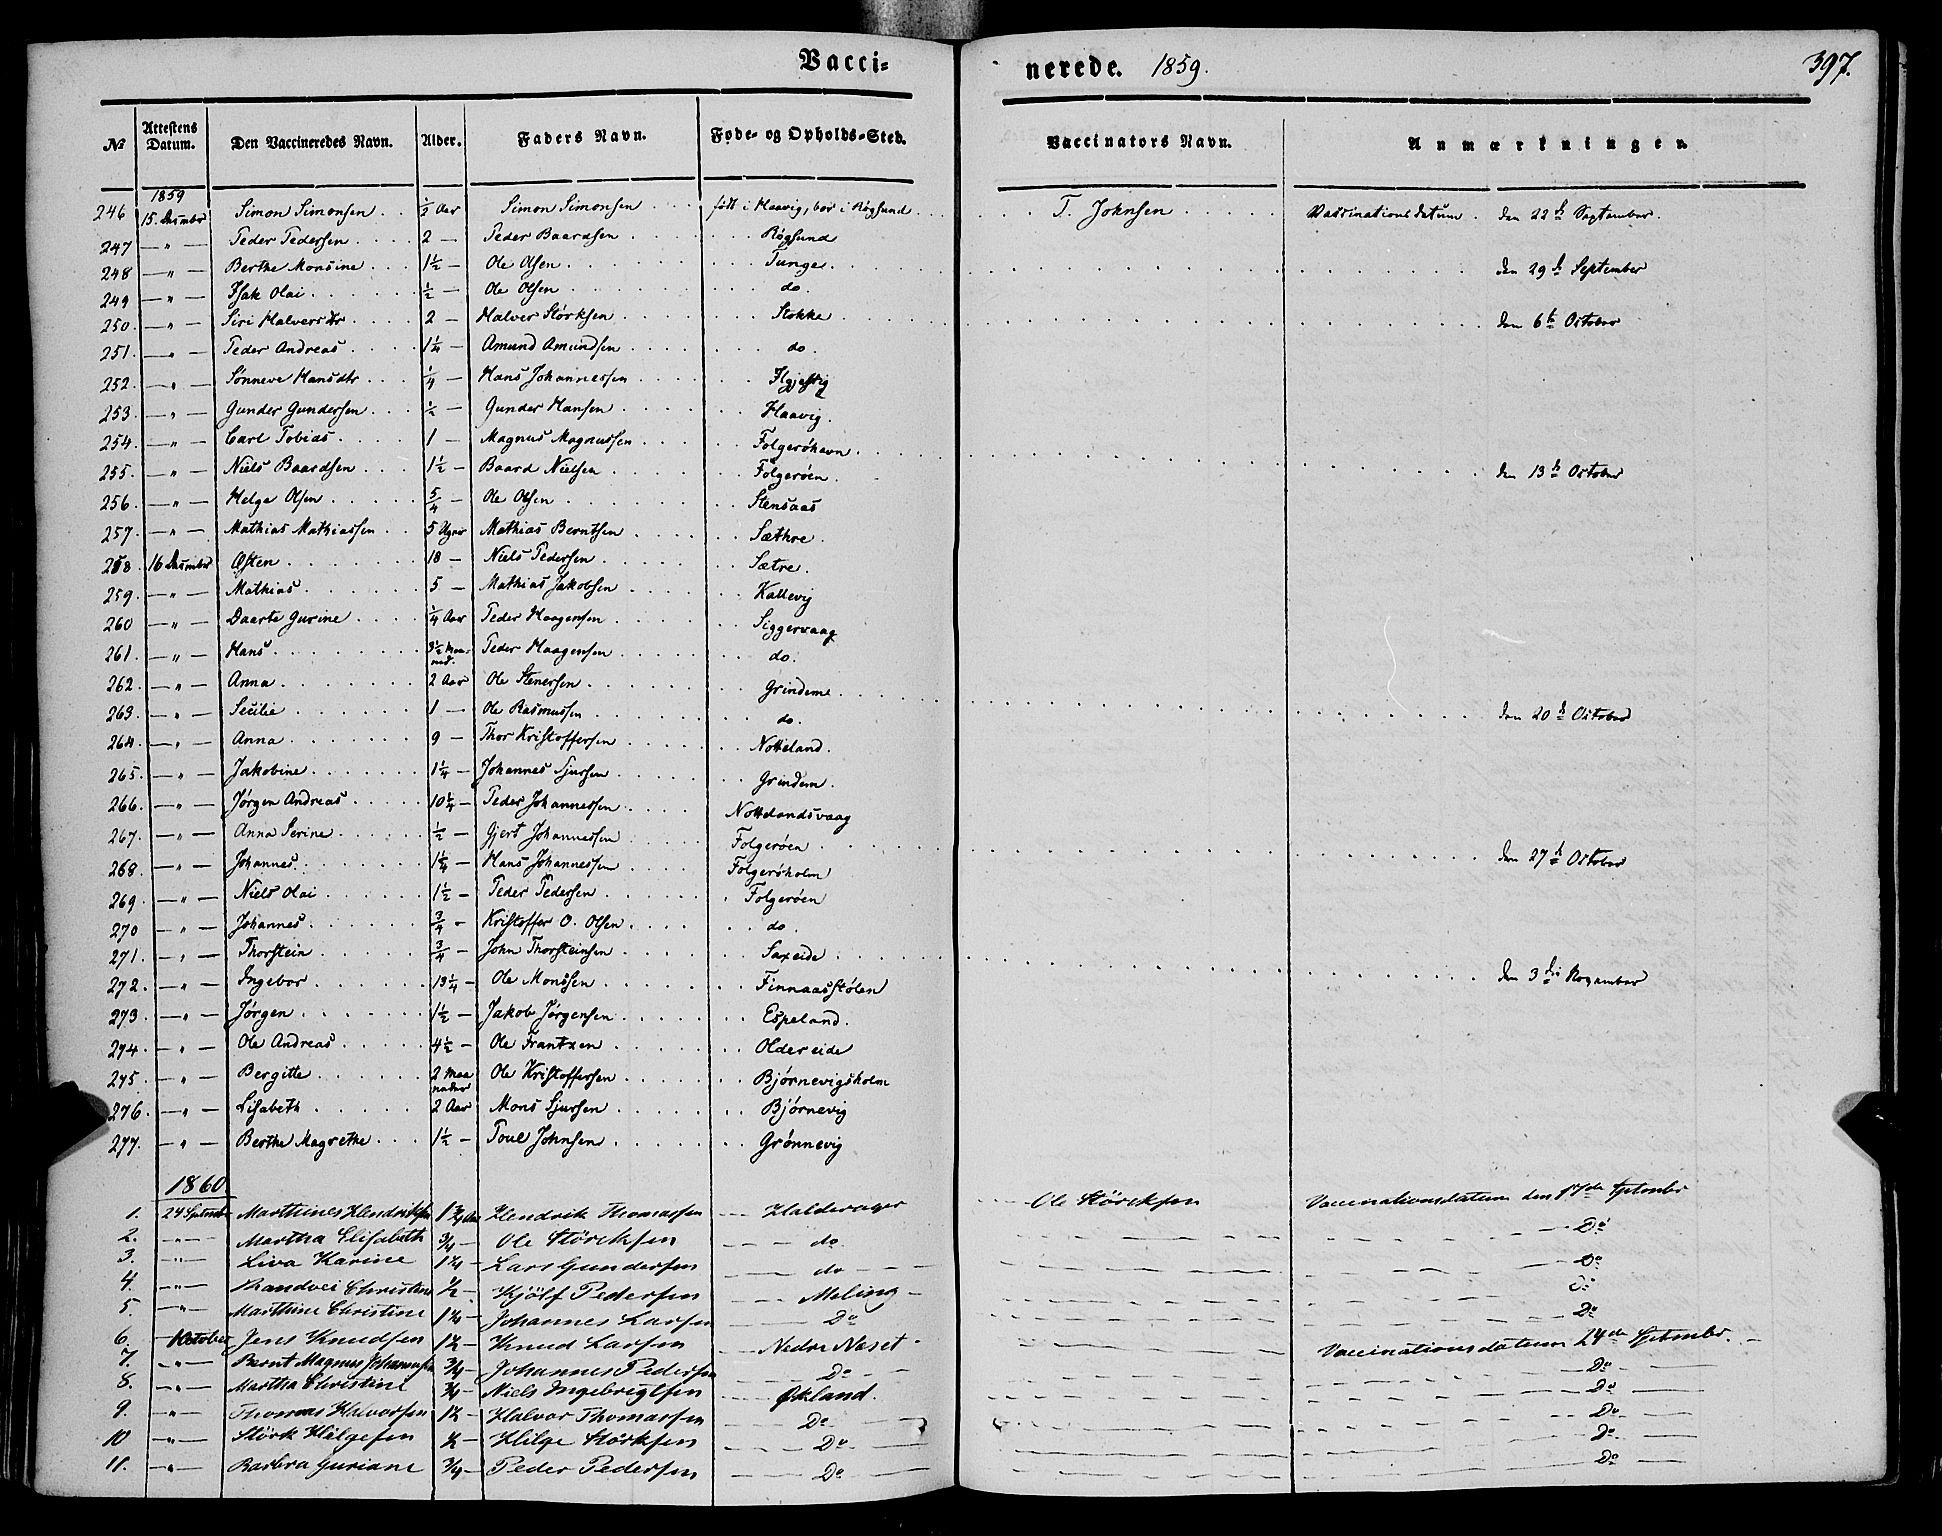 Vacci- nerede. 1859. 397.
No Attestens Datum. Den Vaccineredes Navn. Alder. Faders Navn. Føde- og Opholds-Sted. Vaccinators Navn. Anmærkningen.
1859
246 15. December Simon Simonsen ½ Aar Simon Simonsen født i Haavig, bor i Røgsund T. Johnsen Vaccinationsdatum den 22de September.
247 — " — Peder Pedersen 2 — Peder Baardsen Røgsund
248 — " — Berthe Monsine 1½ — Ole Olsen Tunge den 29de September
249 — " — Isak Olai ½ — Ole Olsen do.
250. — " — Siri Halversdtr 2 — Halver Størksen Stokke den 6te October
251. — " — Peder Andreas 1¼ — Amund Amundsen do.
252. — " — Sønneve Hansdtr ¼ — Hans Johannessen
253. — " — Gunder Gundersen ½ — Gunder Hansen Haavig.
254. — " — Carl Tobias 1 — Magnus Magnussen Folgerøhavn
255. — " — Niels Baardsen 1½ — Baard Nielsen Folgerøen den 13de October
256. — " — Helge Olsen 5/4 — Ole Olsen Stensaas
257. — " — Mathias Mathiassen 5 Uger Mathias Berntsen Sæthre.
258. 16 December Østen 18 — Niels Pedersen Sætre.
259. — " — Mathias 5 — Mathias Jakobsen Kallevig
260 — " — Daarte Gurine ¼ Aar Peder Haagensen Siggervaag
261. — " — Hans 3½ Maaned. Peder Haagensen do.
262. — " — Anna 2 Aar Ole Stenersen Grindem
263. — " — Secilie 1 — Ole Rasmussen do. den 20de October
264. — " — Anna 9 — Thor Kristoffersen Notteland.
265. — " — Jakobine 1¼ — Johannes Sjursen Grindem.
266. — " — Jørgen Andreas 10¼ — Peder Johannessen Nottelandsvaag
267. — " — Anna Serine ½ — Gjert Johannessen Folgerøen den 27de October
268. — " — Johannes 1¼ — Hans Johannessen Folgerøholm
269. — " — Niels Olai 1½ — Peder Pedersen Folgerøen
270 — " — Johannes ¾ — Kristoffer O. Olsen do.
271. — " — Thorstein ¾ — John Thorsteinsen Saxeide
272. — " — Ingebor 13¼ — Ole Monssen Finnaasstølen den 3die November
273. — " — Jørgen 1½ — Jakob Jørgensen Espeland.
274. — " — Ole Andreas 4½ — Ole Frantzen Oldereide
275. — " — Bergitte 2 Maaneder Ole Kristoffersen Bjørnevigsholm
276. — " — Lisabeth 2 Aar Mons Sjursen Bjørnevig
277. — " — Berthe Magrethe 1½ — Poul Johnsen Grønnevig
1860
1. 24 Septembr Marthines Hendriksen 1¾ Aar Hendrik Thomassen Halderager Ole Størcksen Vaccinationsdatum den 17de Septembr
2. — " — Martha Elisabeth ¾ — Ole Størcksen do Do
3. — " — Liva Karine 1¼ — Lars Gundersen do Do
4. — " — Randvei Christine ½ — Kjölf Pedersen Meling Do
5. — " — Marthine Christine 1¼ — Johannes Larsen Do Do
6. 1 October Jens Knudsen 1½ — Knud Larsen Nedre Neset Vaccinationsdatum 24de Septembr.
7. — " — Bernt Magnus Johannesen ¾ — Johannes Pedersen Do Do
8. — " — Martha Christine ¾ — Niels Ingebrigtsen Økland. Do
9. — " — Thomas Halvorsen 1½ — Halvor Thomassen Do Do
10 — " — Størk Helgesen ½ — Helge Størksen Do Do
11. — " — Barbra Guriane ¾ — Peder Pedersen Do Do